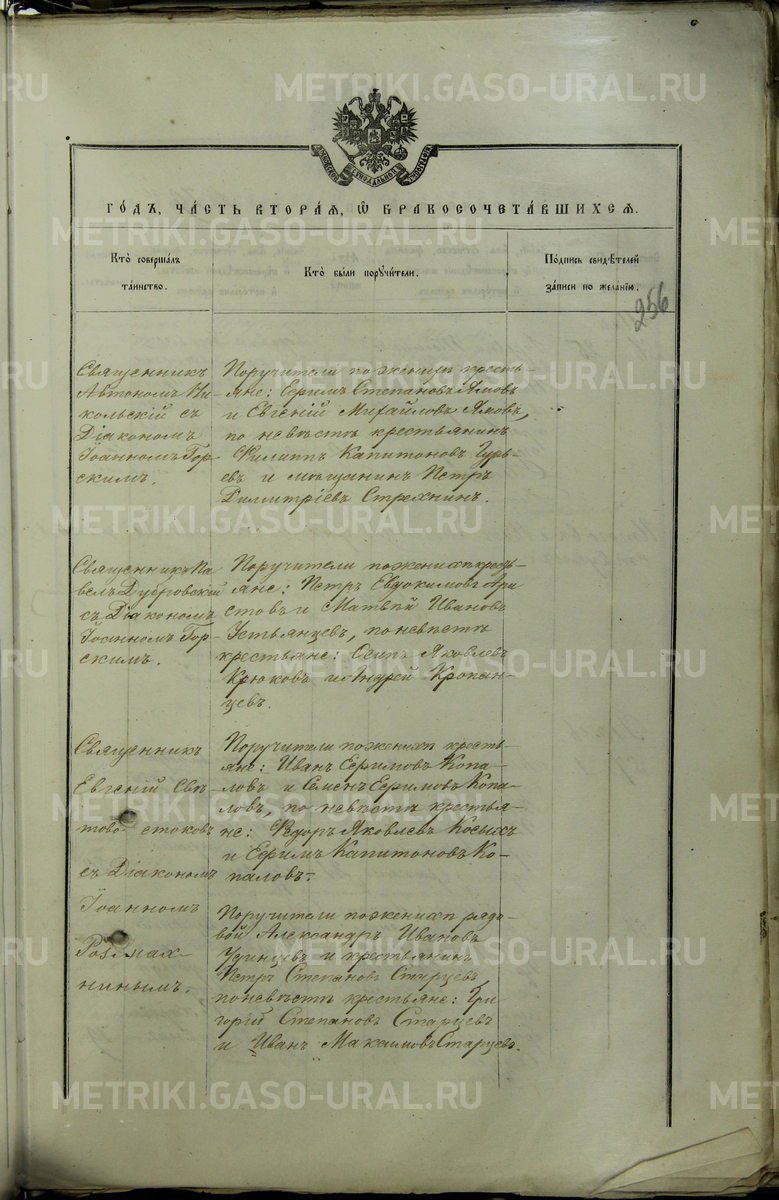 METRIKI.GASO-URAL.RU
ГОДЪ, ЧАСТЬ ВТОРАЯ, Ѿ БРАКОСОЧЕТАВШИХСЯ.
Кто совершалъ
таинство.
Кто были поручители.
Подпись свидѣтелей
записи по желанію.
256
Священникъ
Автономъ Ни-
кольскій съ
Діакономъ
Іоанномъ Гор-
скимъ.
Поручители по женихѣ кресть-
яне: Ефимъ Степановъ Ямовъ
и Евгеній Михайловъ Ямовъ,
по невѣстѣ крестьянинъ
Филиппъ Капитоновъ Гурь-
евъ и мѣщанинъ Петръ
Димитріевъ Стрехнинъ.
Священникъ Па-
велъ Дубровскій
съ Діакономъ
Іоанномъ Гор-
скимъ.
Поручители по женихѣ кресть-
яне: Петръ Евдокимовъ Ари
стовъ и Матвѣй Ивановъ
Устьянцевъ, по невѣстѣ
крестьяне: Осипъ Яковлевъ
Крюковъ и Андрей Кропан-
цевъ.
Священникъ
Евгеній Свѣ-
товостоковъ
съ Діакономъ
Іоанномъ
ниннымъ.
Поручители по женихѣ кресть-
яне: Иванъ Ефимовъ Копа-
ловъ и Семенъ Ефимовъ Копа-
ловъ, по невѣстѣ крестья-
не: Ѳедоръ Яковлевъ Косыхъ
и Ефимъ Капитоновъ Ко-
паловъ.
Поручители по женихѣ рядо-
вой Александръ Ивановъ
Удинцевъ и крестьянинъ
Петръ Степановъ Старцевъ
по невѣстѣ крестьяне: Гри-
горій Степановъ Старцевъ
и Иванъ Максимовъ Старцевъ.